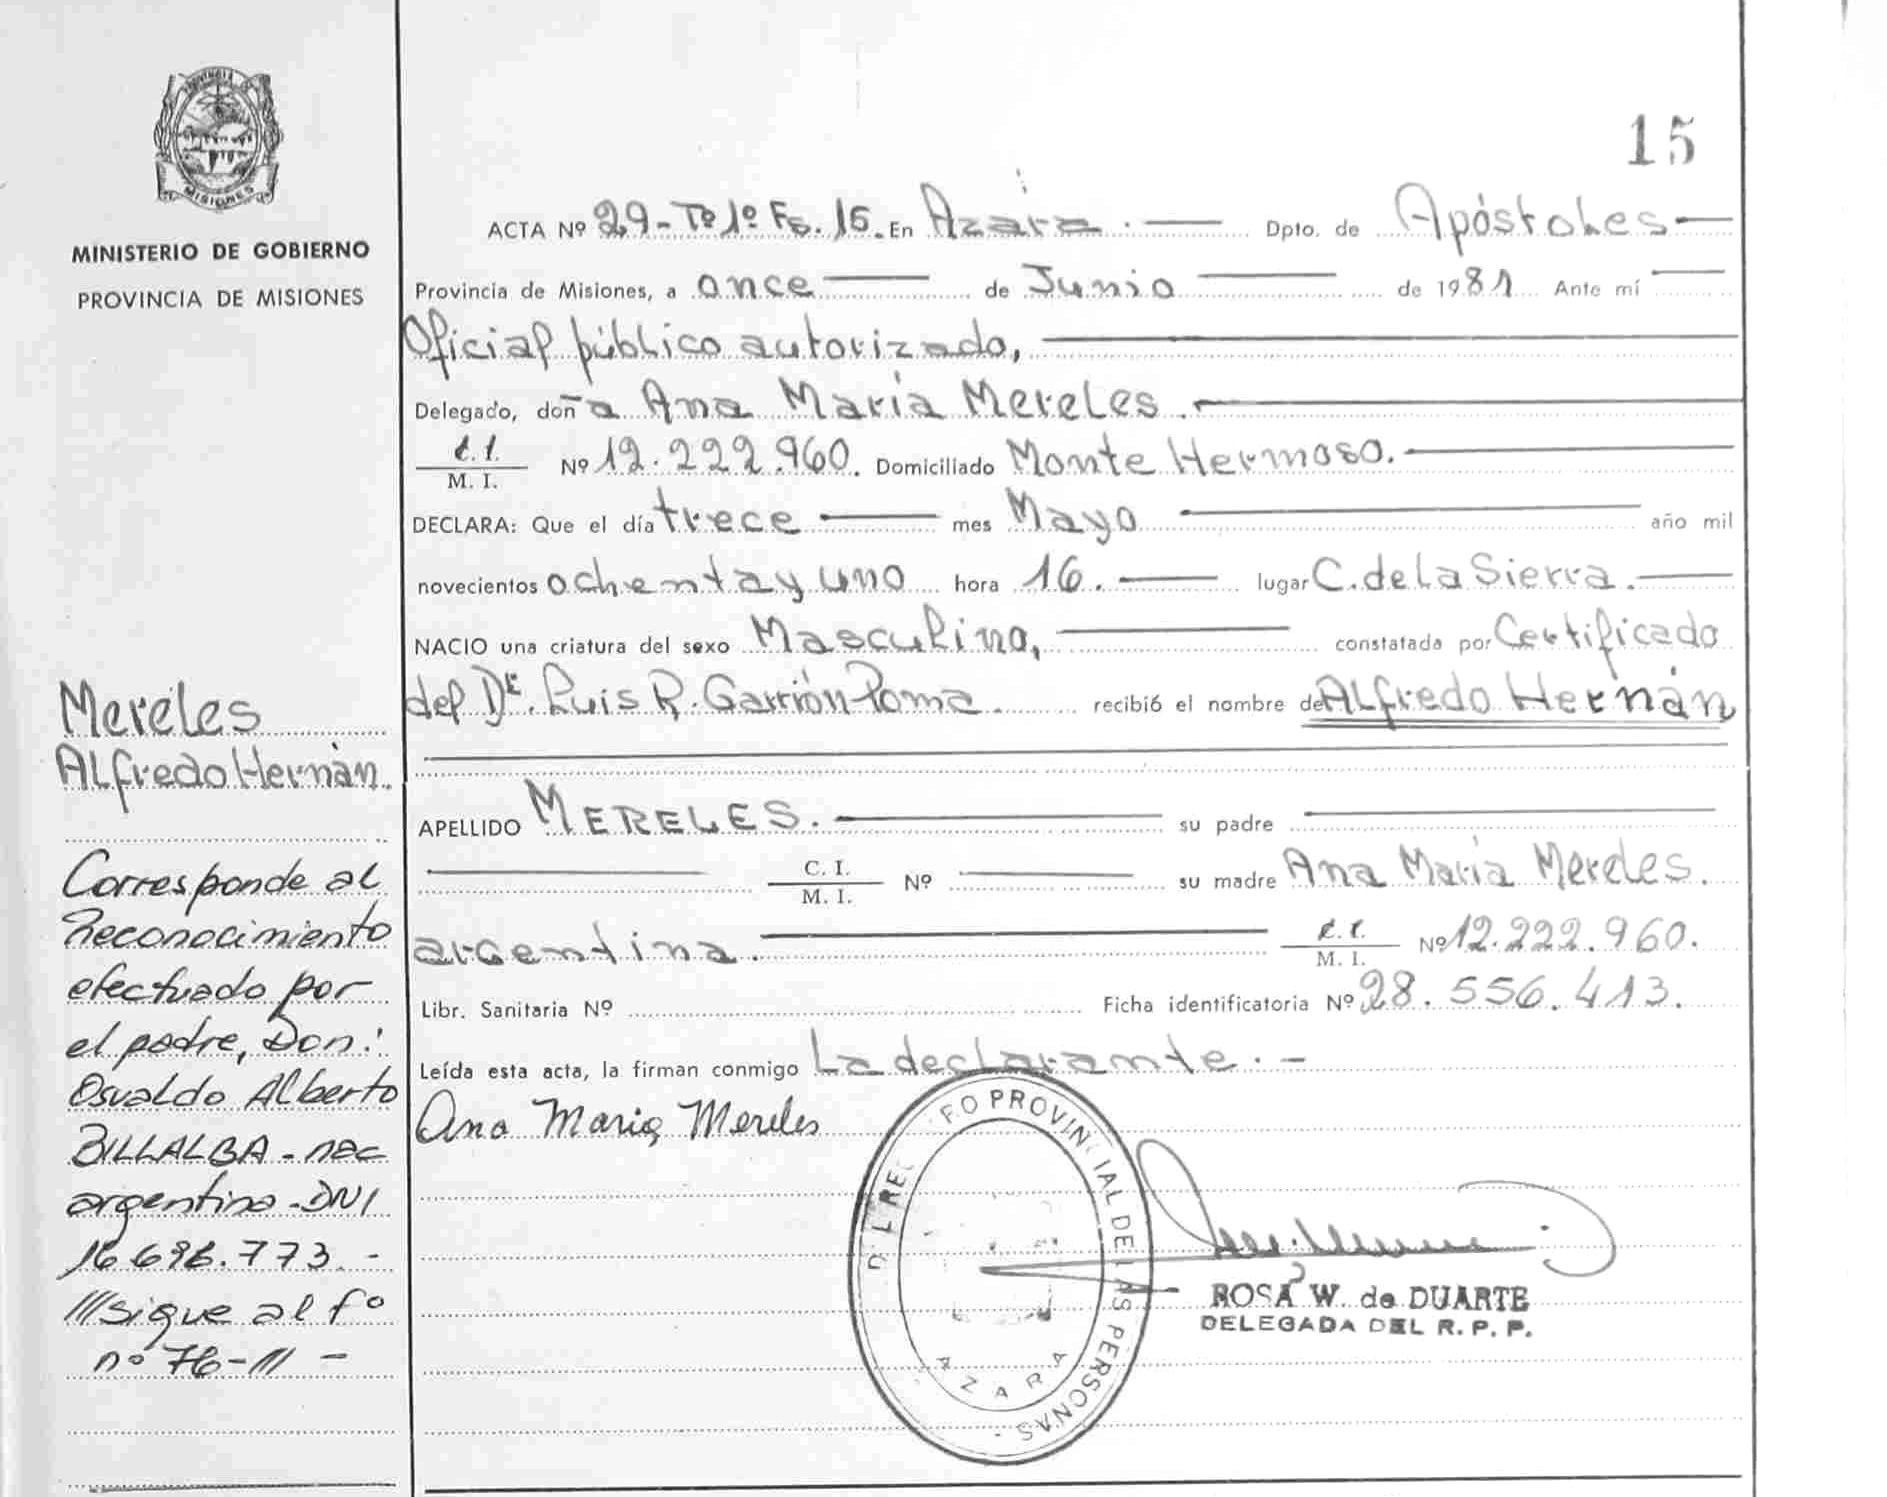 PROVINCIA DE
MISIONES
MINISTERIO DE GOBIERNO
PROVINCIA DE MISIONES
Mereles
Alfredo Hernán
Corresponde al
Reconocimiento
efectuado por
el padre, Don:
Osvaldo Alberto
BILLALBA - nac
argentino - DNI
16.696.773.-
///sigue al fº
nº 76-///-
15
ACTA Nº 29 - Tº 1º Fs. 15. En Azara. — Dpto. de Apóstoles —
Provincia de Misiones, a once — de Junio — de 1981 Ante mí —
Oficial público autorizado, —
Delegado, doña Ana María Mereles. —
C.I. / M. I. Nº 12.222.960. Domiciliado Monte Hermoso. —
DECLARA: Que el día trece — mes Mayo — año mil
novecientos ochenta y uno hora 16. — lugar C. de la Sierra. —
NACIO una criatura del sexo Masculino, — constatada por Certificado
del Dr. Luis R. Garrión Poma. recibió el nombre de Alfredo Hernán
APELLIDO MERELES. — su padre —
— C. I. / M. I. Nº — su madre Ana María Mereles.
argentina. — C.I. / M. I. Nº 12.222.960.
Libr. Sanitaria Nº Ficha identificatoria Nº 28.556.413.
Leída esta acta, la firman conmigo La declarante. -
Ana Maria Mereles
FO PROVINCIAL DE LAS PERSONAS -
AZARA
ROSA W. de DUARTE
DELEGADA DEL R. P. P.